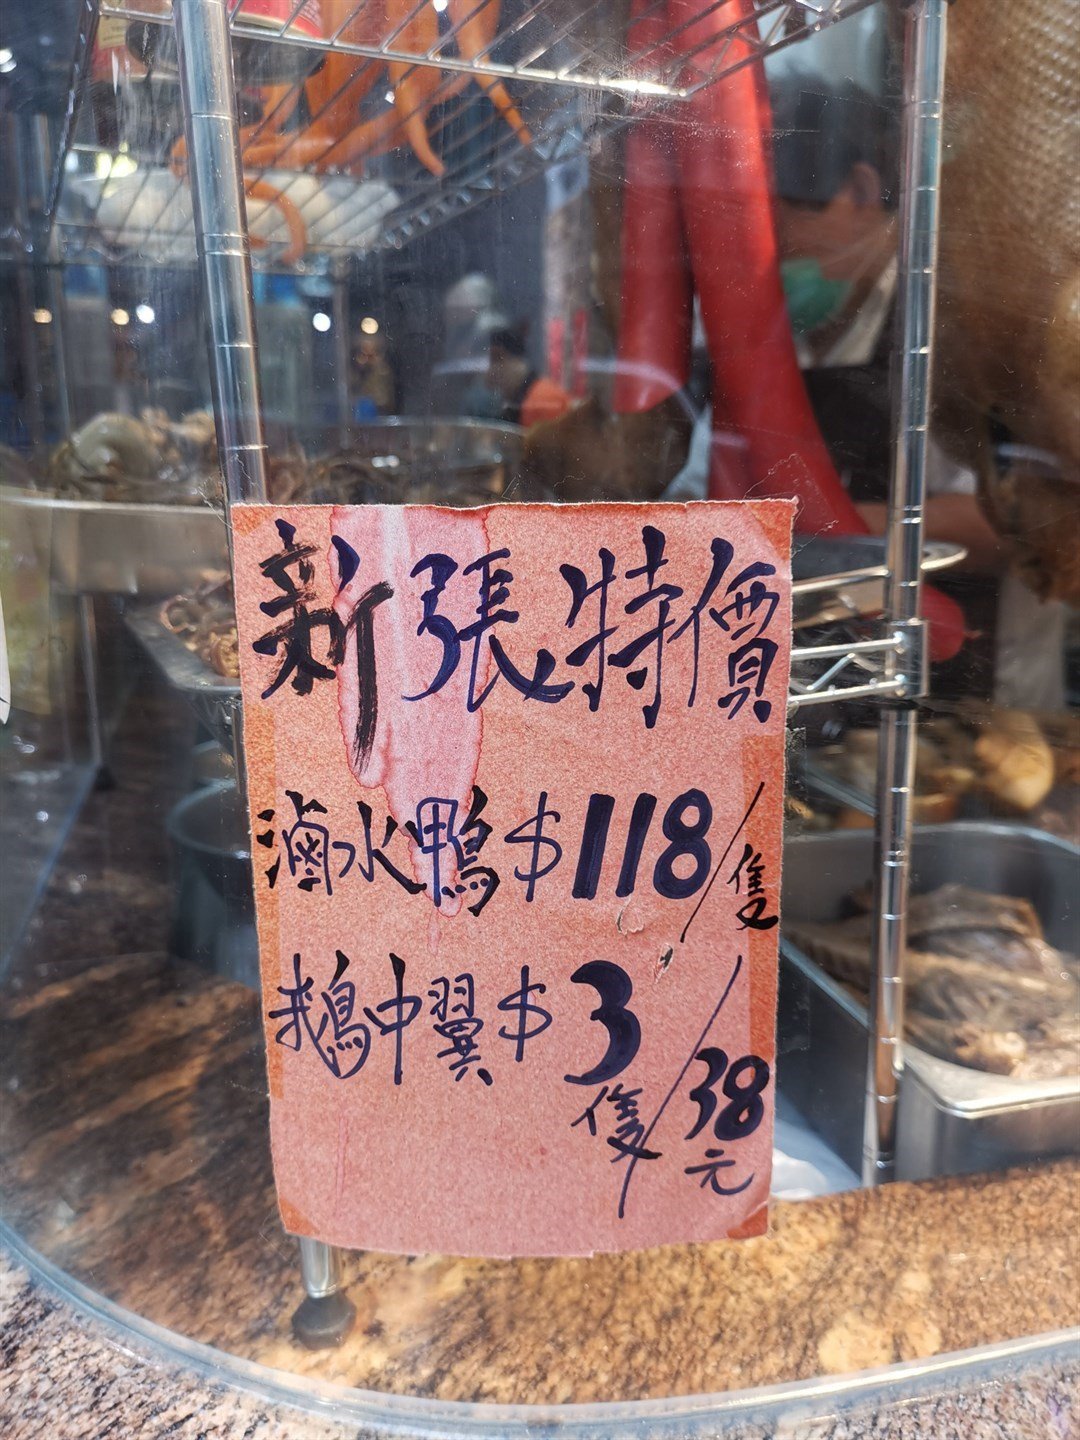 新張特價
滷水鴨 $118/隻
鵝中翼 $3隻/38元